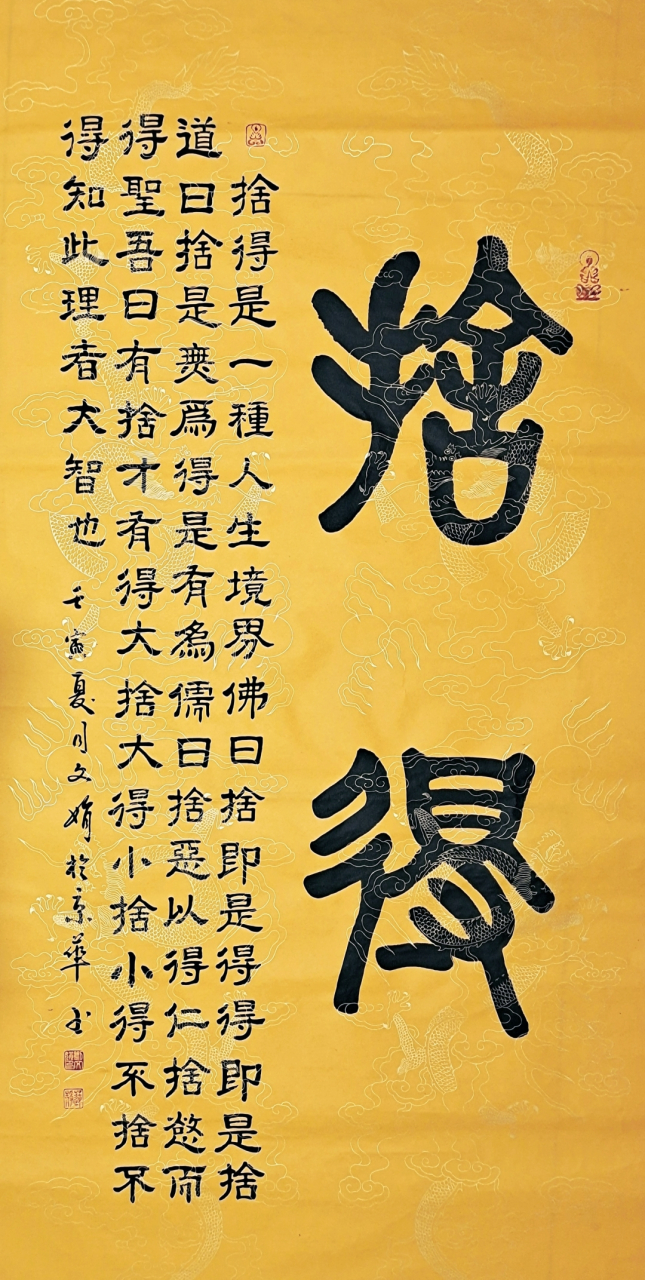 捨得
捨得是一種人生境界佛曰捨即是得得即是捨
道曰捨是無爲得是有為儒曰捨惡以得仁捨慾而
得聖吾曰有捨才有得大捨大得小捨小得不捨不
得知此理者大智也 壬寅夏月文娟於京華书